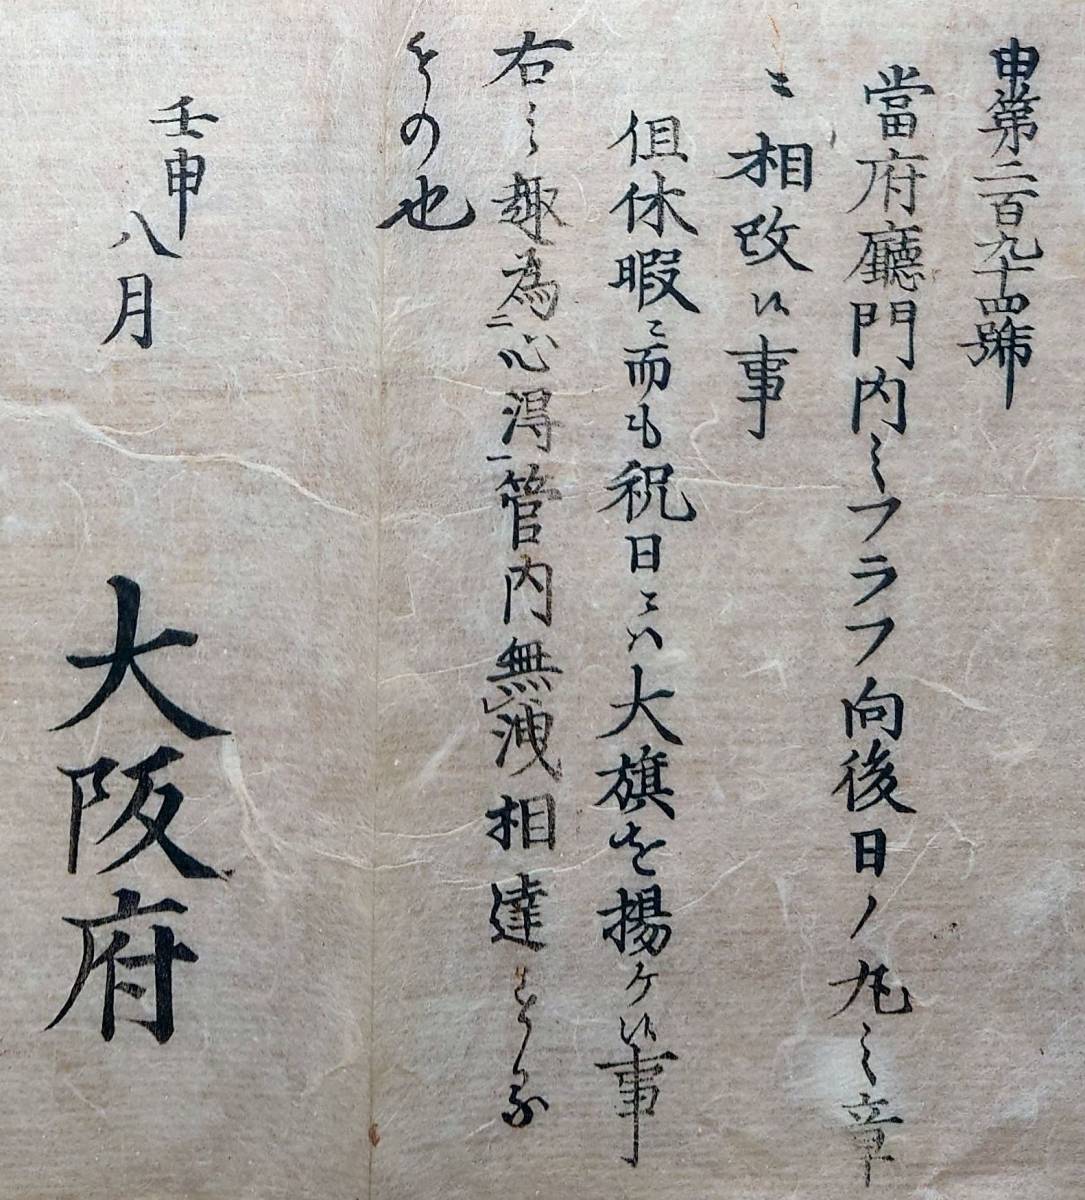 申第二百九十四號
當府廳門内之フラフ向後日ノ丸之章
ニ相改候事
但休暇ニ而も祝日ニハ大旗を揚ケ候事
右之趣為_二心得_一管内無_レ洩相達する
もの也
壬申八月
大阪府